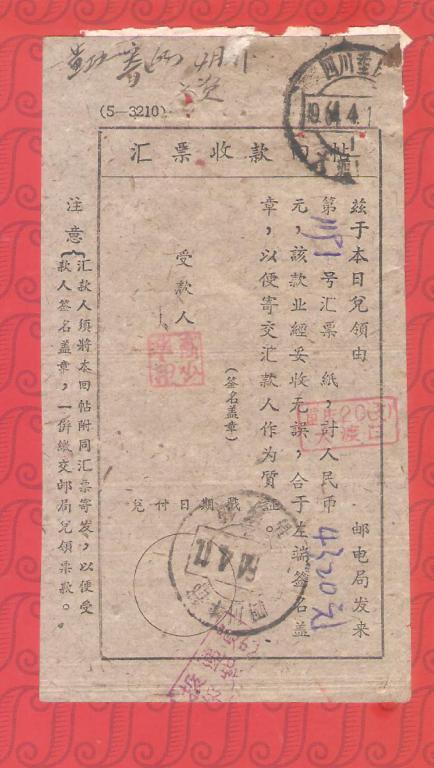 (5—3210)
汇票收款回帖
兹于本日兑领由 邮电局发来
第 号汇票 纸,計人民币 4320元
元,該款业經妥收无誤,合于左端签名盖
章,以便寄交汇款人作为質証。
受款人
(签名盖章)
兑付日期戳
注意{汇款人须將本回帖附同汇票寄发,以便受
款人签名盖章,一併繳交邮局兑領票款。
四川重
19 64.4.1
大渡口
64.4.11